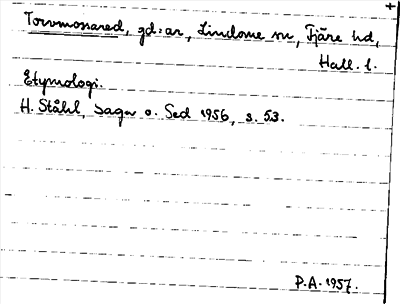 Torvmossared, gd:ar, Lindome sn, Fjäre hd,
Hall. l.
Etymologi.
H. Ståhl, Saga o. Sed 1956, s. 53.
P.A. 1957.